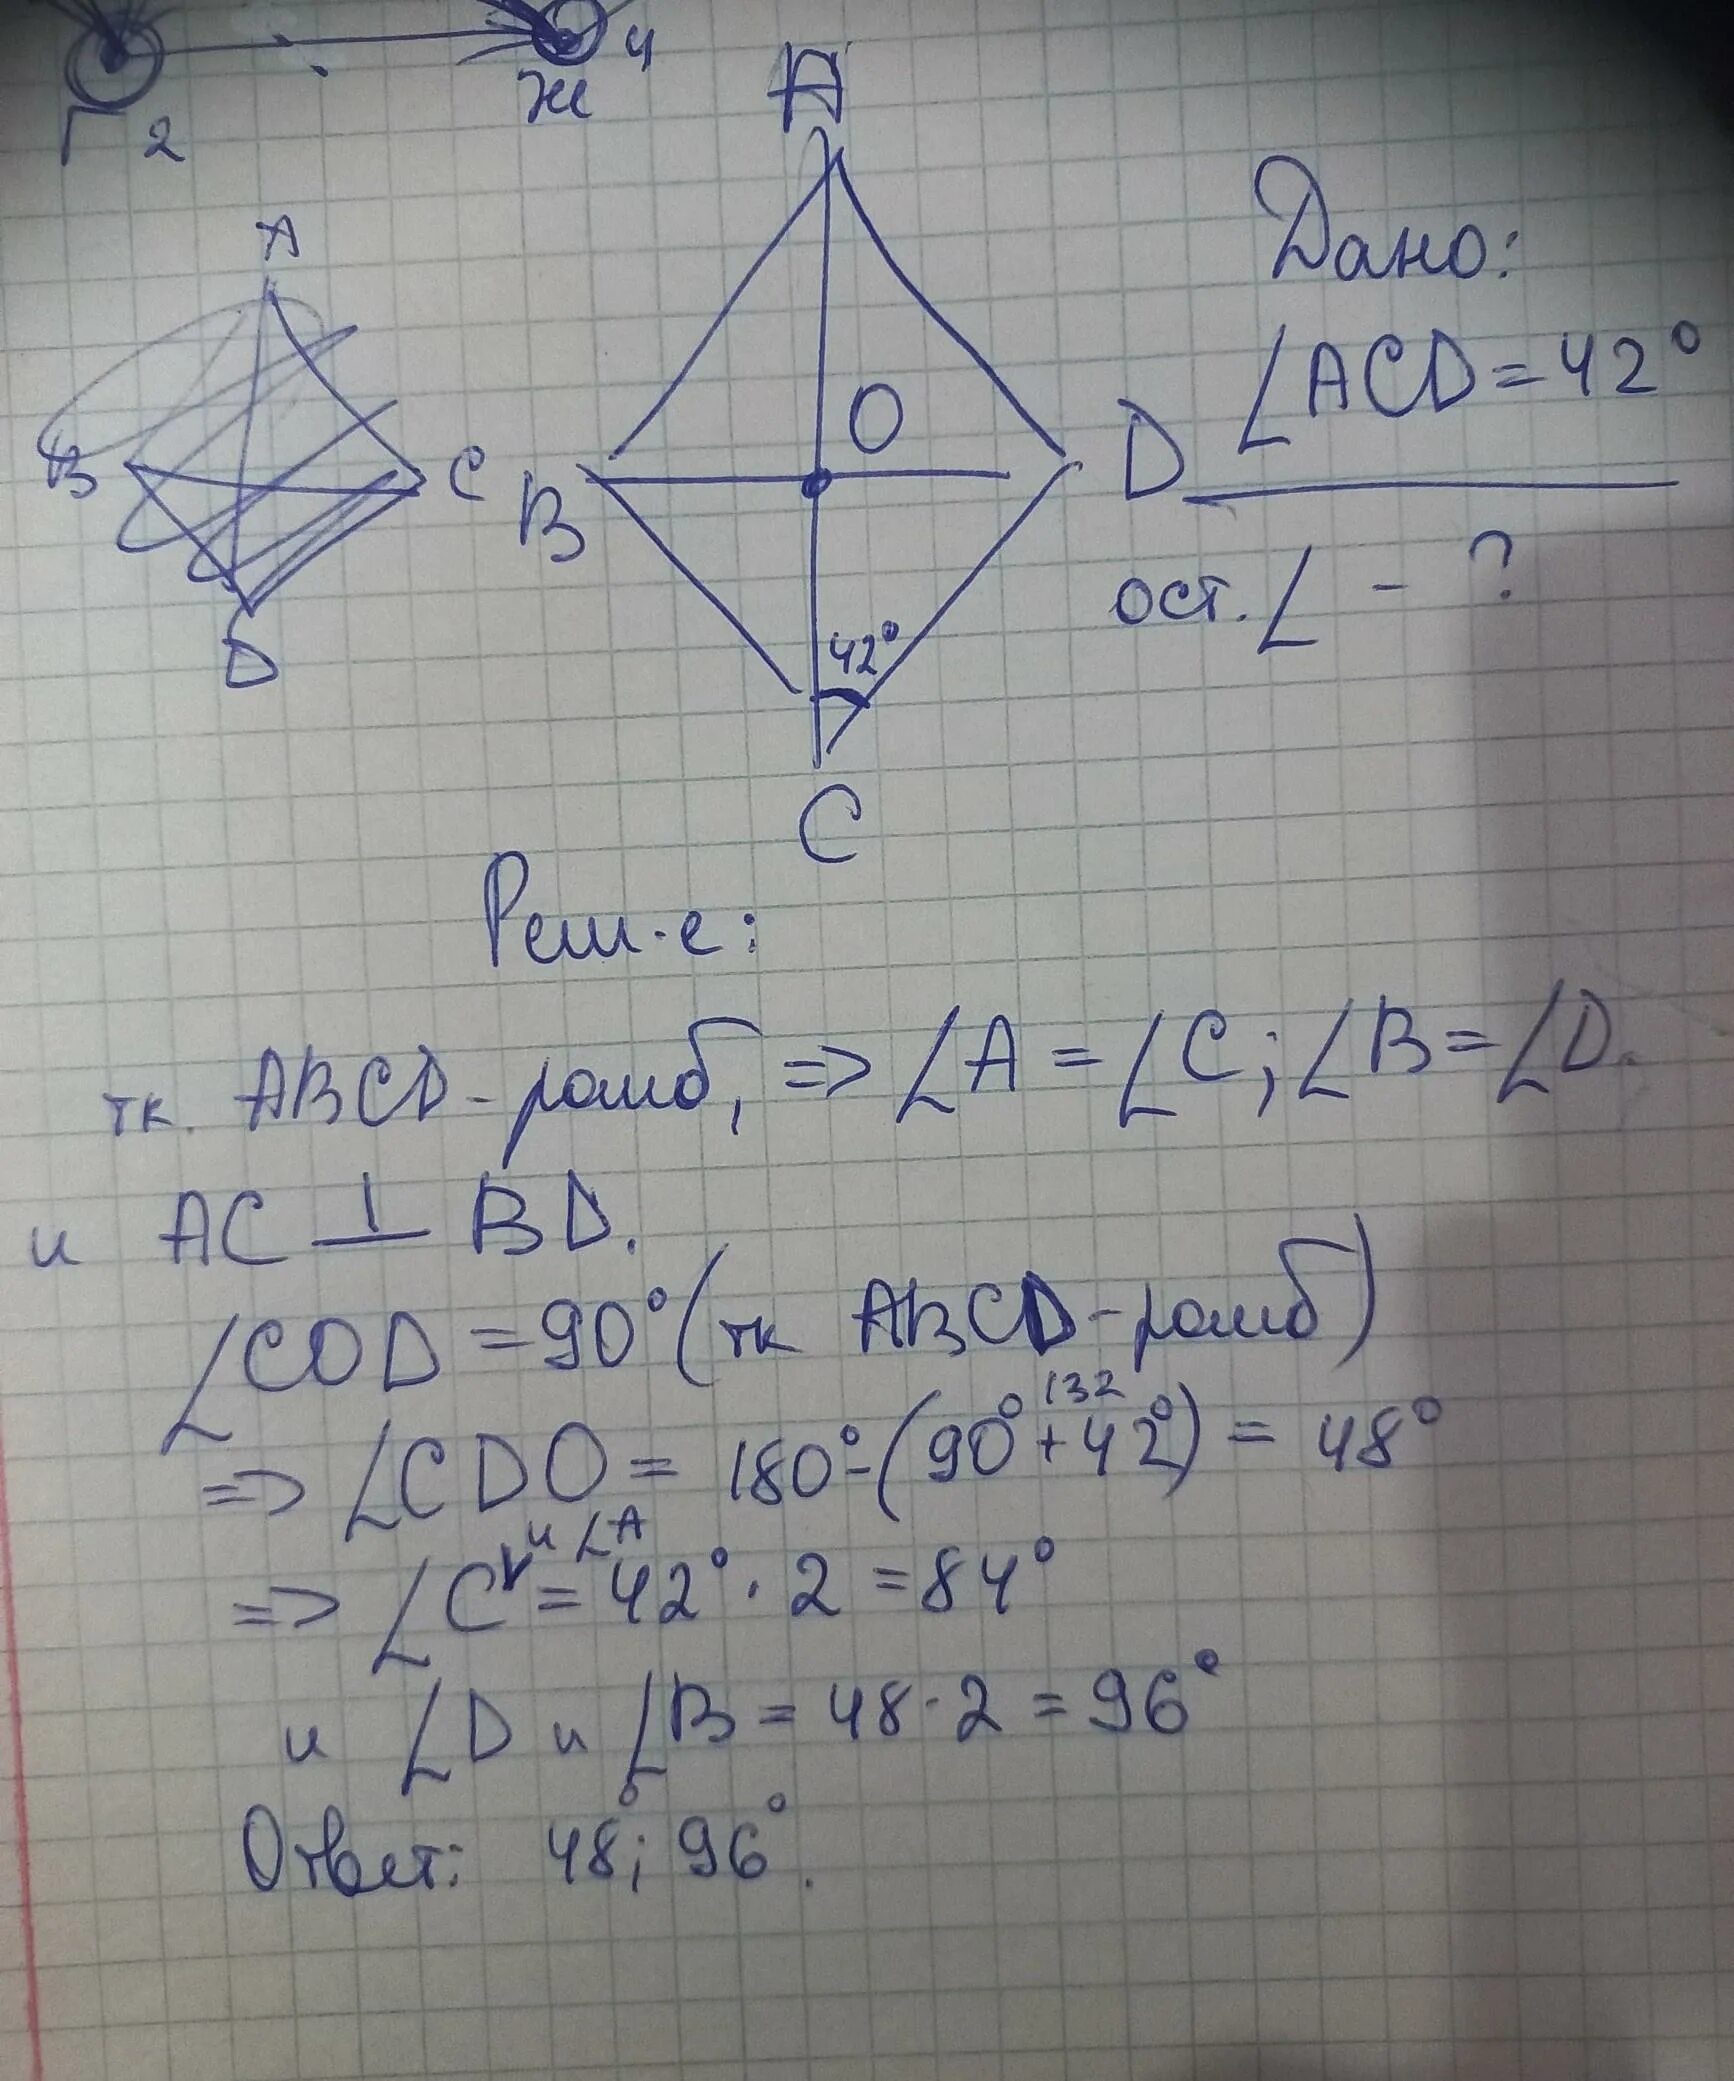 Г 2
Ж 4
A
B C
D
A
B O D
42°
C
Дано:
∠ACD = 42°
ост. ∠ - ?
Реш-е:
тк. ABCD - ромб, => ∠A = ∠C; ∠B = ∠D.
и AC ⊥ BD.
∠COD = 90° (тк ABCD - ромб)
132
=> ∠CDO = 180° - (90° + 42°) = 48°
и ∠A
=> ∠C = 42° · 2 = 84°
и ∠D и ∠B = 48 · 2 = 96°
Ответ: 48°; 96°.